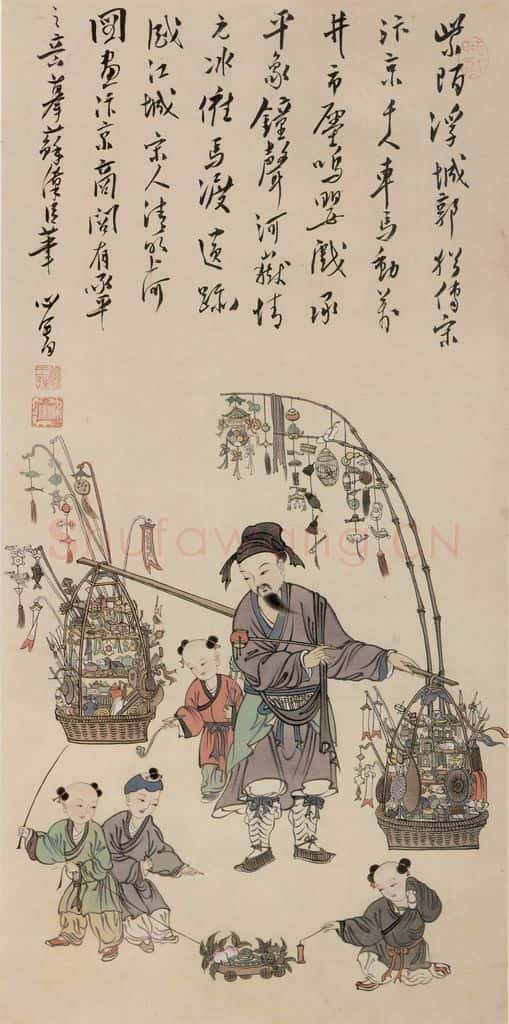 紫陌浮城郭猶傳宋
汴京千人車馬動萬
井市廛鳴嬰戲承
平象鐘聲河嶽情
元冰催馬渡遺跡
感江城宋人清明上河
圖畫汴京商有承平
之音摹蘇漢臣筆 心畬
Shufawang.CN